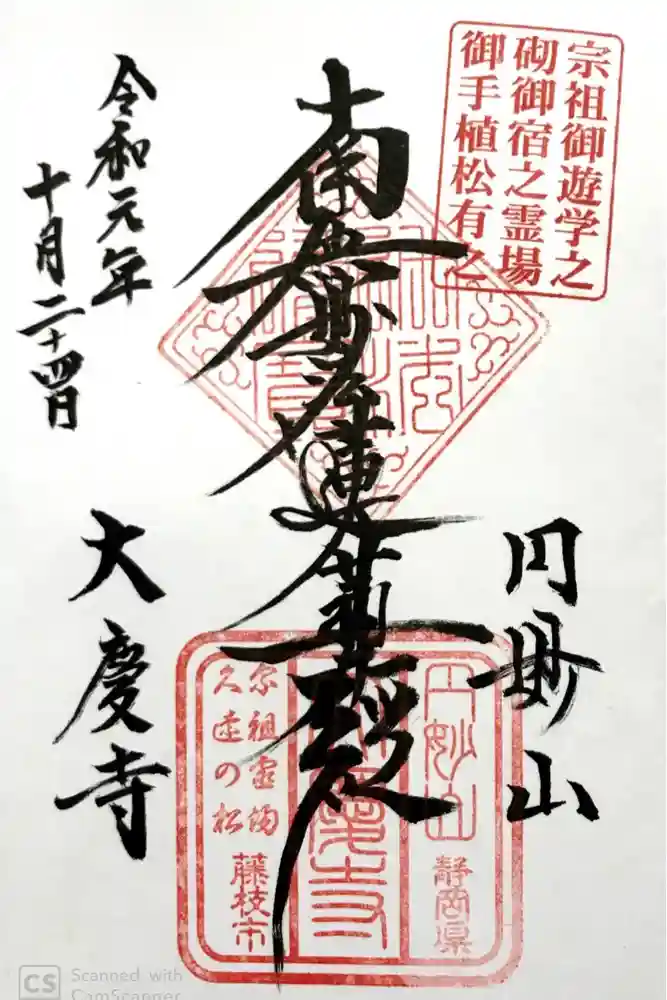 宗祖御遊学之
砌御宿之霊場
御手植松有之
円妙山
南無妙法蓮華経
令和元年
十月二十四日
大慶寺
円妙山
静岡県
大慶寺
宗祖霊場
久遠の松
藤枝市
CS Scanned with
CamScanner